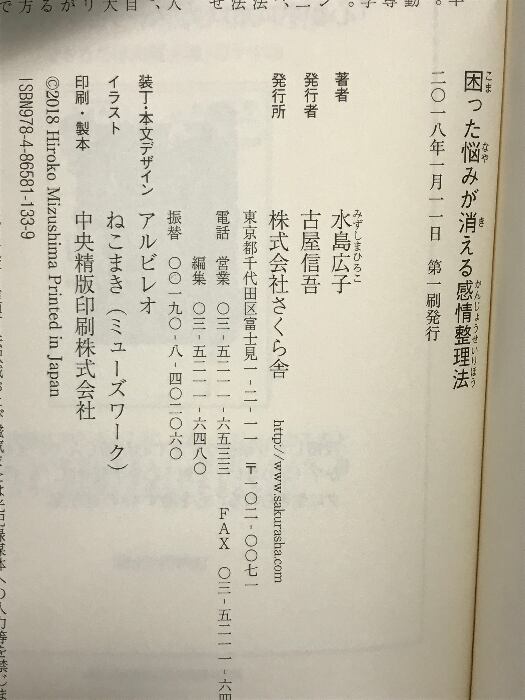 困った悩みが消える感情整理法
二〇一八年一月一一日 第一刷発行
著者 水島広子
発行者 古屋信吾
発行所 株式会社さくら舎 http://www.sakurasha.com
東京都千代田区富士見一-二-一一 〒一〇二-〇〇七一
電話 営業 〇三-五二一一-六五三三 FAX 〇三-五二一一-六四
編集 〇三-五二一一-六四八〇
振替 〇〇一九〇-八-四〇二〇六〇
装丁・本文デザイン アルビレオ
イラスト ねこまき(ミューズワーク)
印刷・製本 中央精版印刷株式会社
©2018 Hiroko Mizushima Printed in Japan
ISBN978-4-86581-133-9